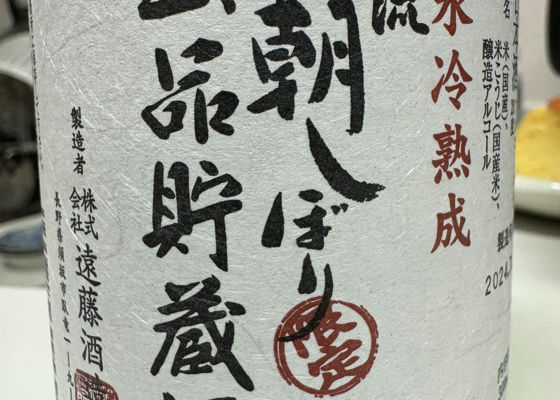 米(国産)、
米こうじ(国産米)、
醸造アルコール
2024.
氷冷熟成
流
朝しぼり
限定
出品貯蔵
製造者
株式
会社
遠藤酒
長野県須坂市